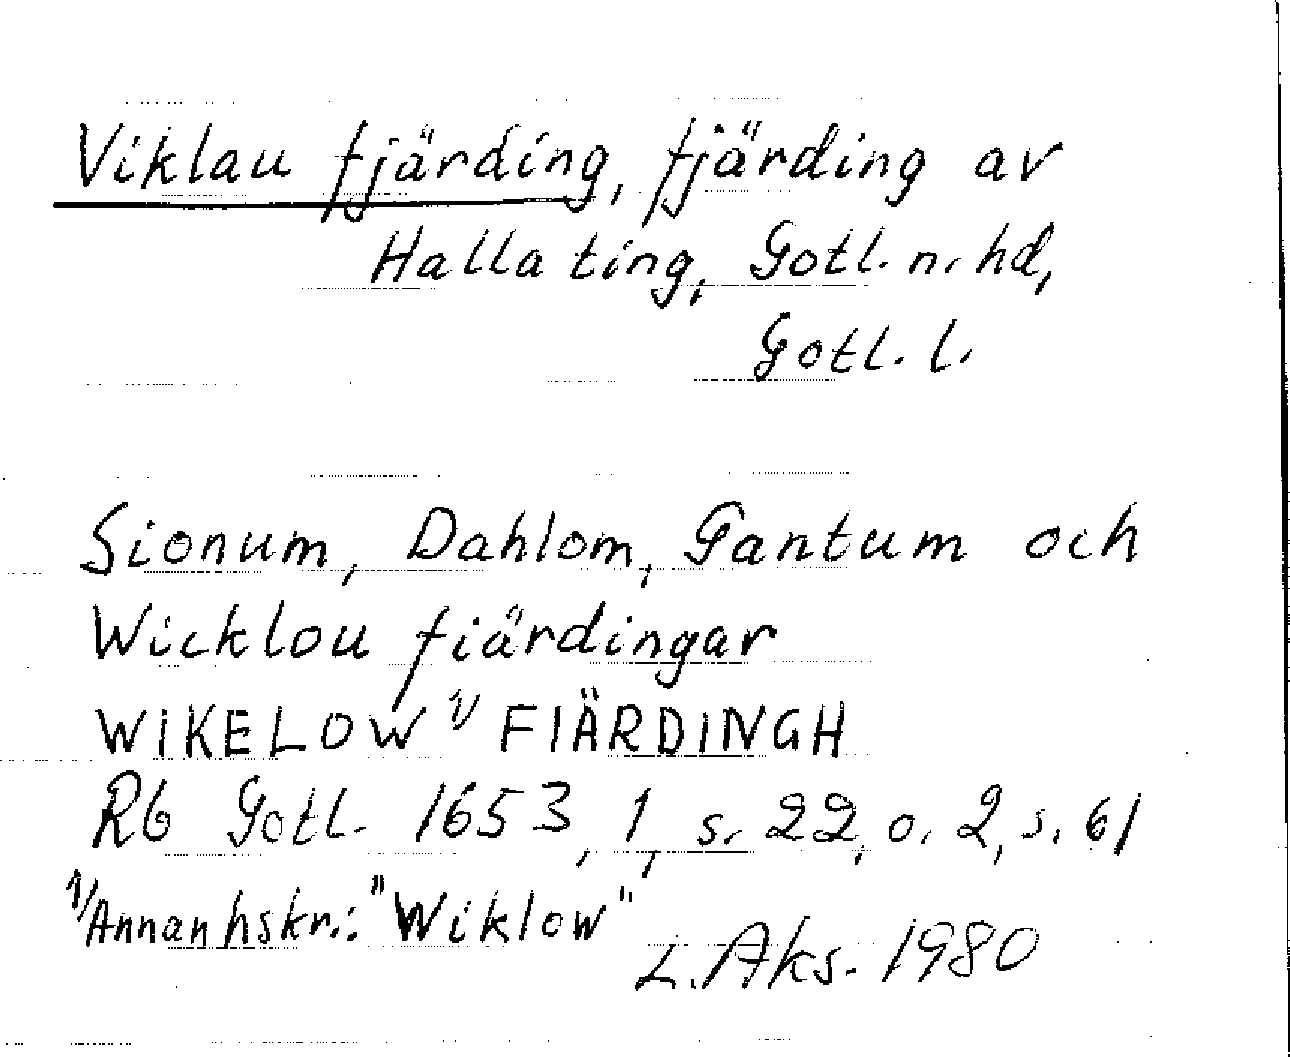 Viklau fjärding, fjärding av
Halla ting, Gotl. n. hd,
Gotl. l.
Sionum, Dahlom, Gantum och
Wicklou fiärdingar
WIKELOW 1/ FIÄRDINGH
Rb Gotl. 1653, 1, s. 22, o. 2, s. 61
1/ Annan hskr.: "Wiklow"
L. Aks. 1980